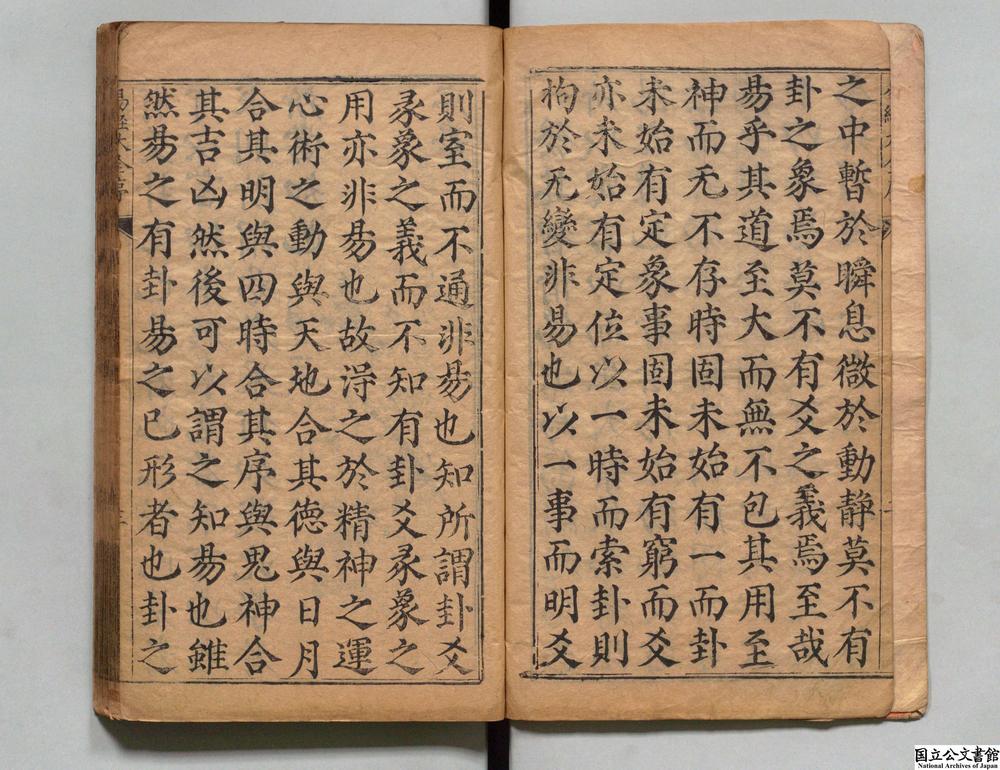 之中暫於瞬息微於動靜莫不有
卦之象焉莫不有爻之義焉至哉
易乎其道至大而無不包其用至
神而无不存時固未始有一而卦
未始有定象事固未始有窮而爻
亦未始有定位以一時而索卦則
拘於无變非易也以一事而明爻
則室而不通非易也知所謂卦爻
彖象之義而不知有卦爻彖象之
用亦非易也故淂之於精神之運
心術之動與天地合其德與日月
合其明與四時合其序與鬼神合
其吉凶然後可以謂之知易也雖
然易之有卦易之已形者也卦之
易經大全序
国立公文書館
National Archives of Japan